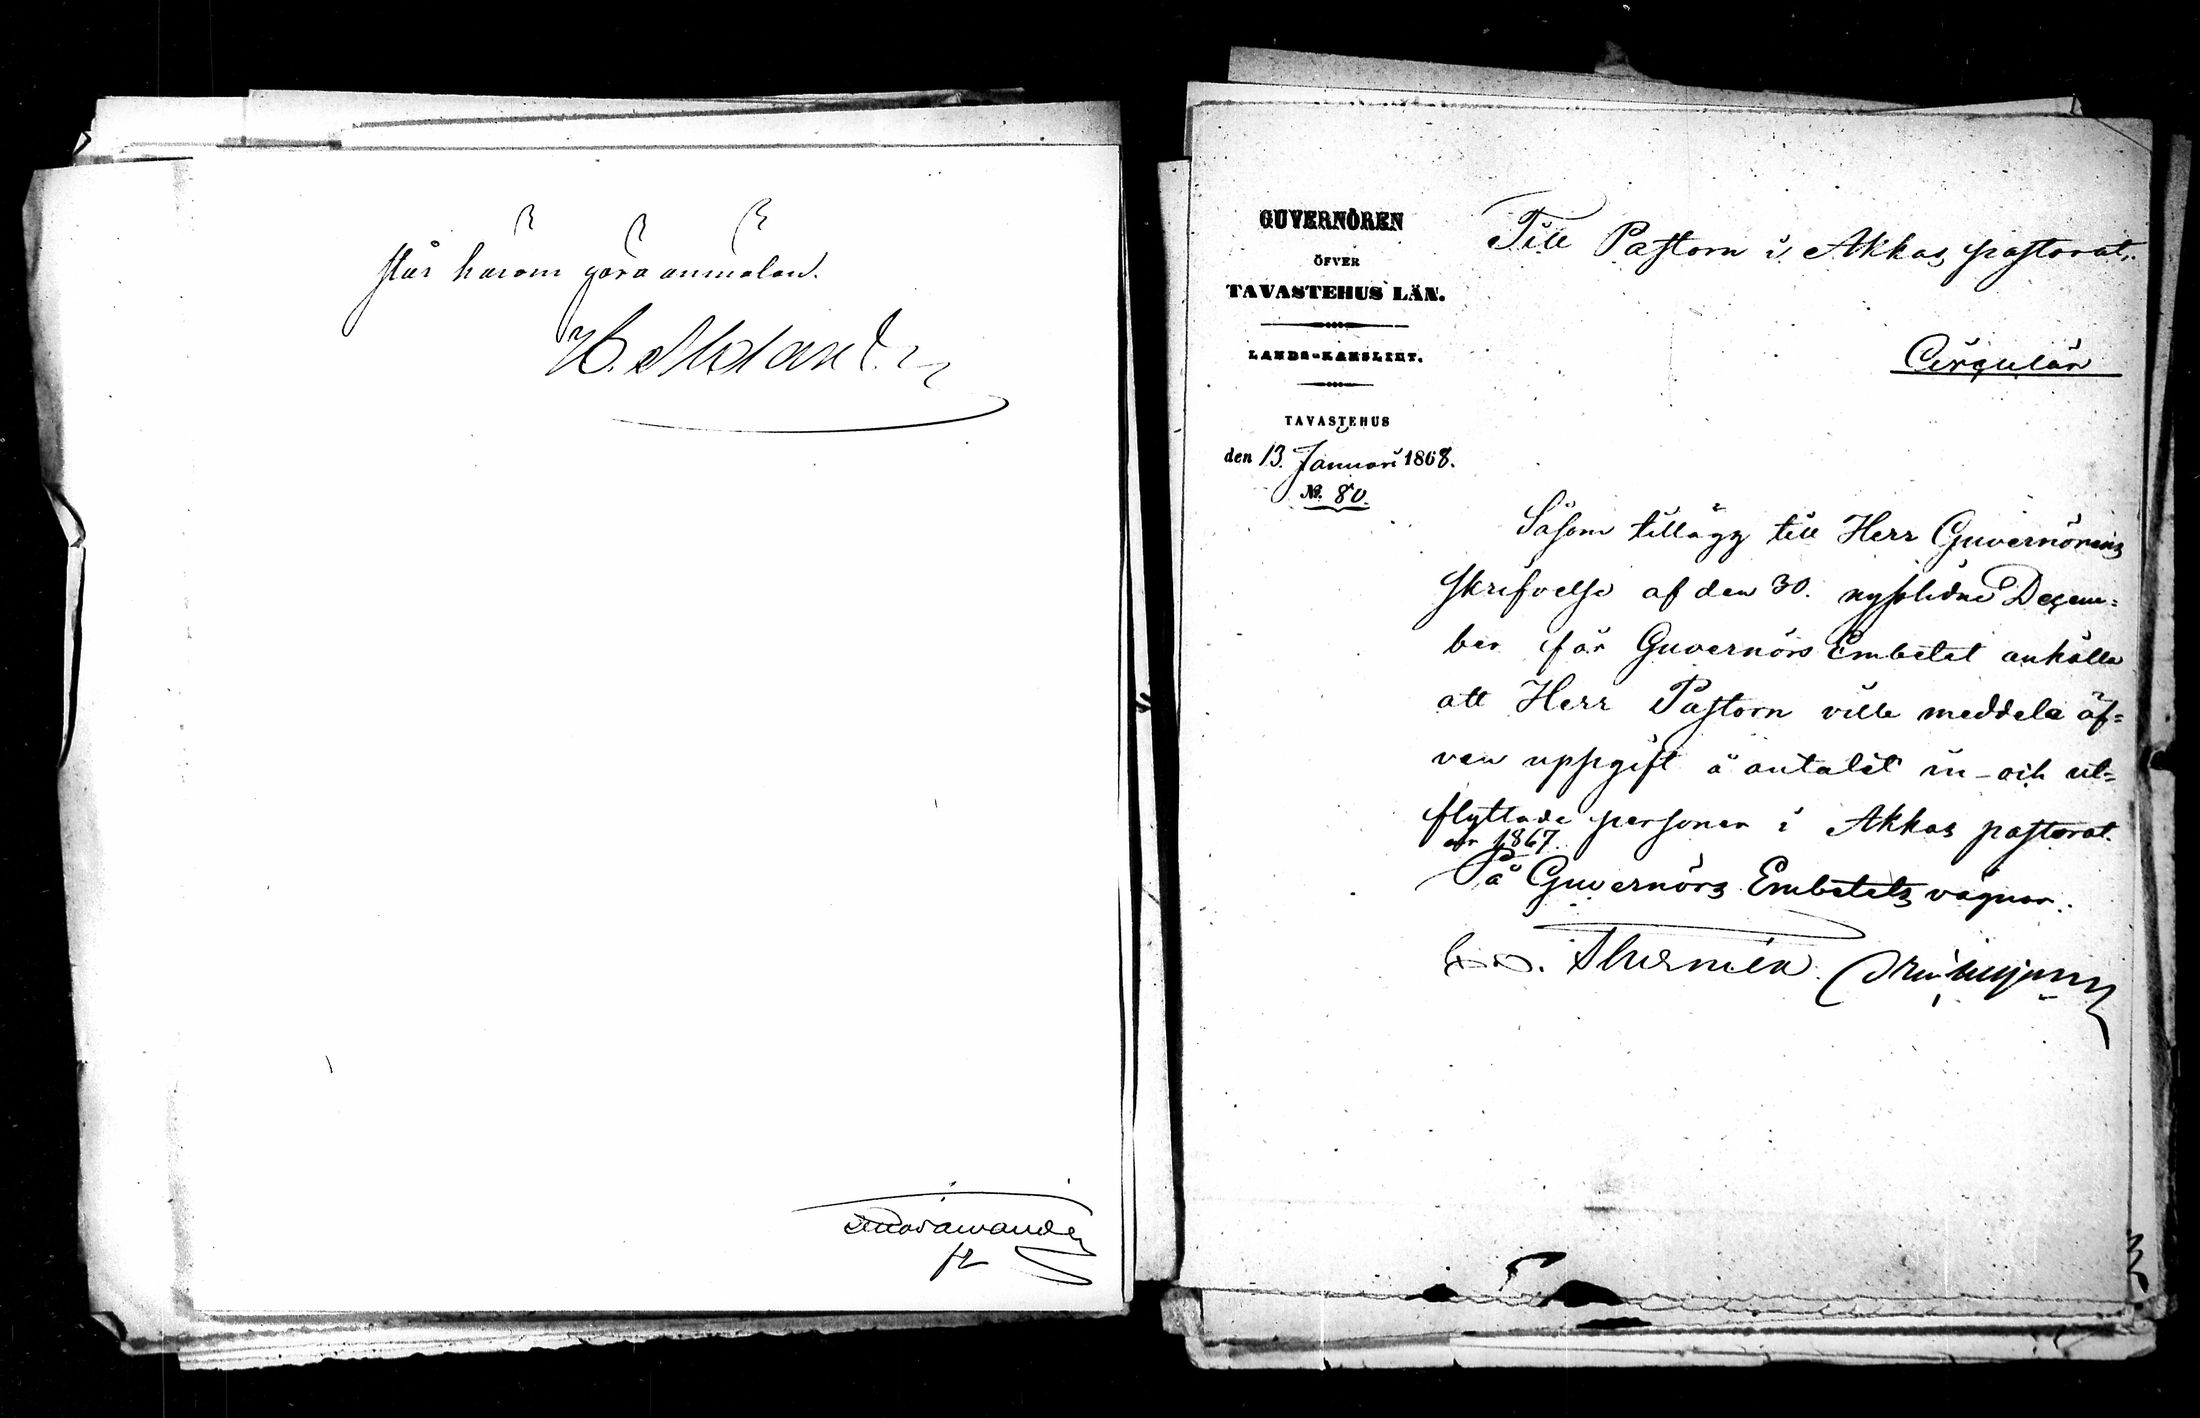 står härom göra anmälan.
GUVERNÖREN
ÖFVER
TAVASTEHUS LÄN.
LANDS-KANSLIET.
TAVASTEHUS
den 13. Januari 1868.
No. 80.
Till Pastorn i Akkas pastorat.
Cirqulär
Såsom tillägg till Herr Guvernörens
skrifvelse af den 30. nystlidne Decem=
ber får Guvernörs Embetet anhålla
att Herr Pastorn ville meddela äf=
ven uppgift å antalet in- och ut=
flyttade personer i Akkas pastorat
år 1867.
På Guvernörs Embetets vägnar: